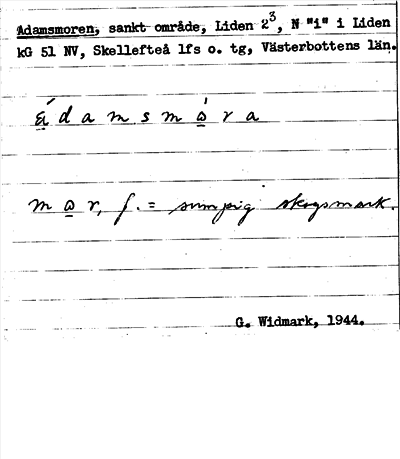 Adamsmoren, sankt område, Liden 2³, N "i" i Liden
kG 51 NV, Skellefteå lfs o. tg, Västerbottens län.
ádamsmώ̲ra
mω̲r, f. = sumpig skogsmark.
G. Widmark, 1944.